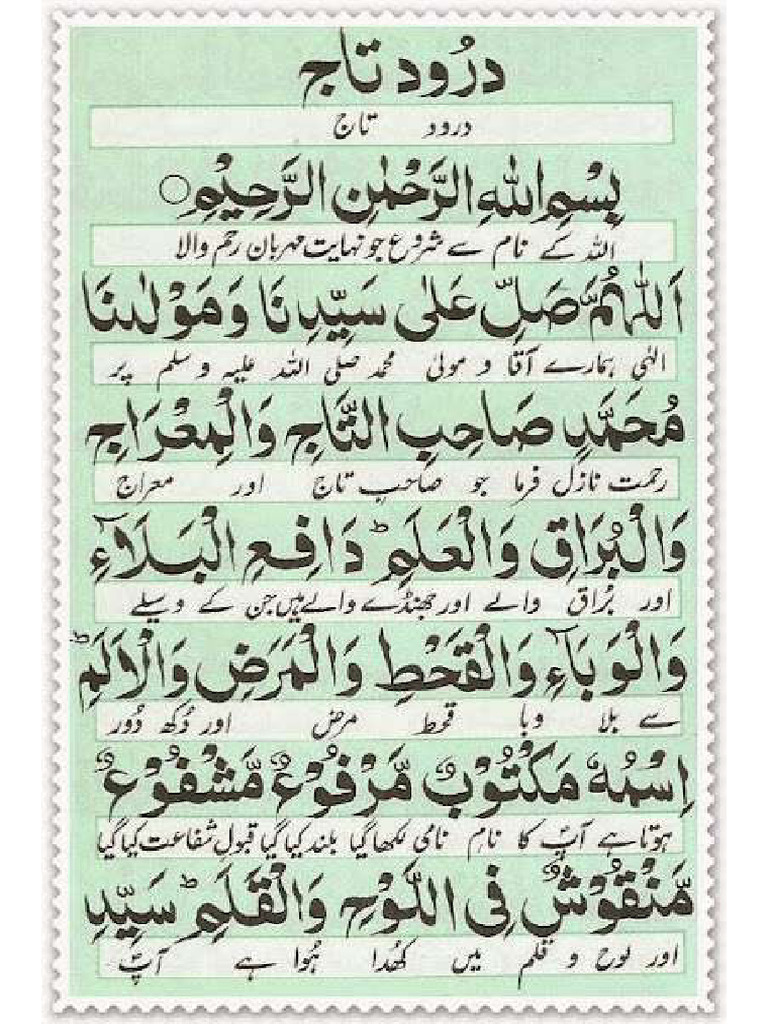 درُود تاج
درود تاج
بِسْمِ اللهِ الرَّحْمٰنِ الرَّحِيْمِ○
اللہ کے نام سے شروع جو نہایت مہربان رحم والا
اَللّٰهُمَّ صَلِّ عَلٰى سَيِّدِنَا وَمَوْلٰىنَا
الٰہی ہمارے آقا و مولیٰ محمد صلی اللہ علیہ وسلم پر
مُحَمَّدٍ صَاحِبِ التَّاجِ وَالْمِعْرَاجِ
رحمت نازل فرما جو صاحبِ تاج اور معراج
وَالْبُرَاقِ وَالْعَلَمِ ؕ دَافِعِ الْبَلَآءِ
اور بُراق والے اور جھنڈے والے ہیں جن کے وسیلے
وَالْوَبَآءِ وَالْقَحْطِ وَالْمَرَضِ وَالْاَلَمِ ؕ
سے بلا وبا قحط مرض اور دُکھ دُور
اِسْمُهٗ مَكْتُوْبٌ مَّرْفُوْعٌ مَّشْفُوْعٌ
ہوتا ہے آپؐ کا نام نامی لکھا گیا بلند کیا گیا قبول شفاعت کیا گیا
مَّنْقُوْشٌ فِى اللَّوْحِ وَالْقَلَمِ ؕ سَيِّدِ
اور لوح و قلم میں کھُدا ہُوا ہے آپؐ